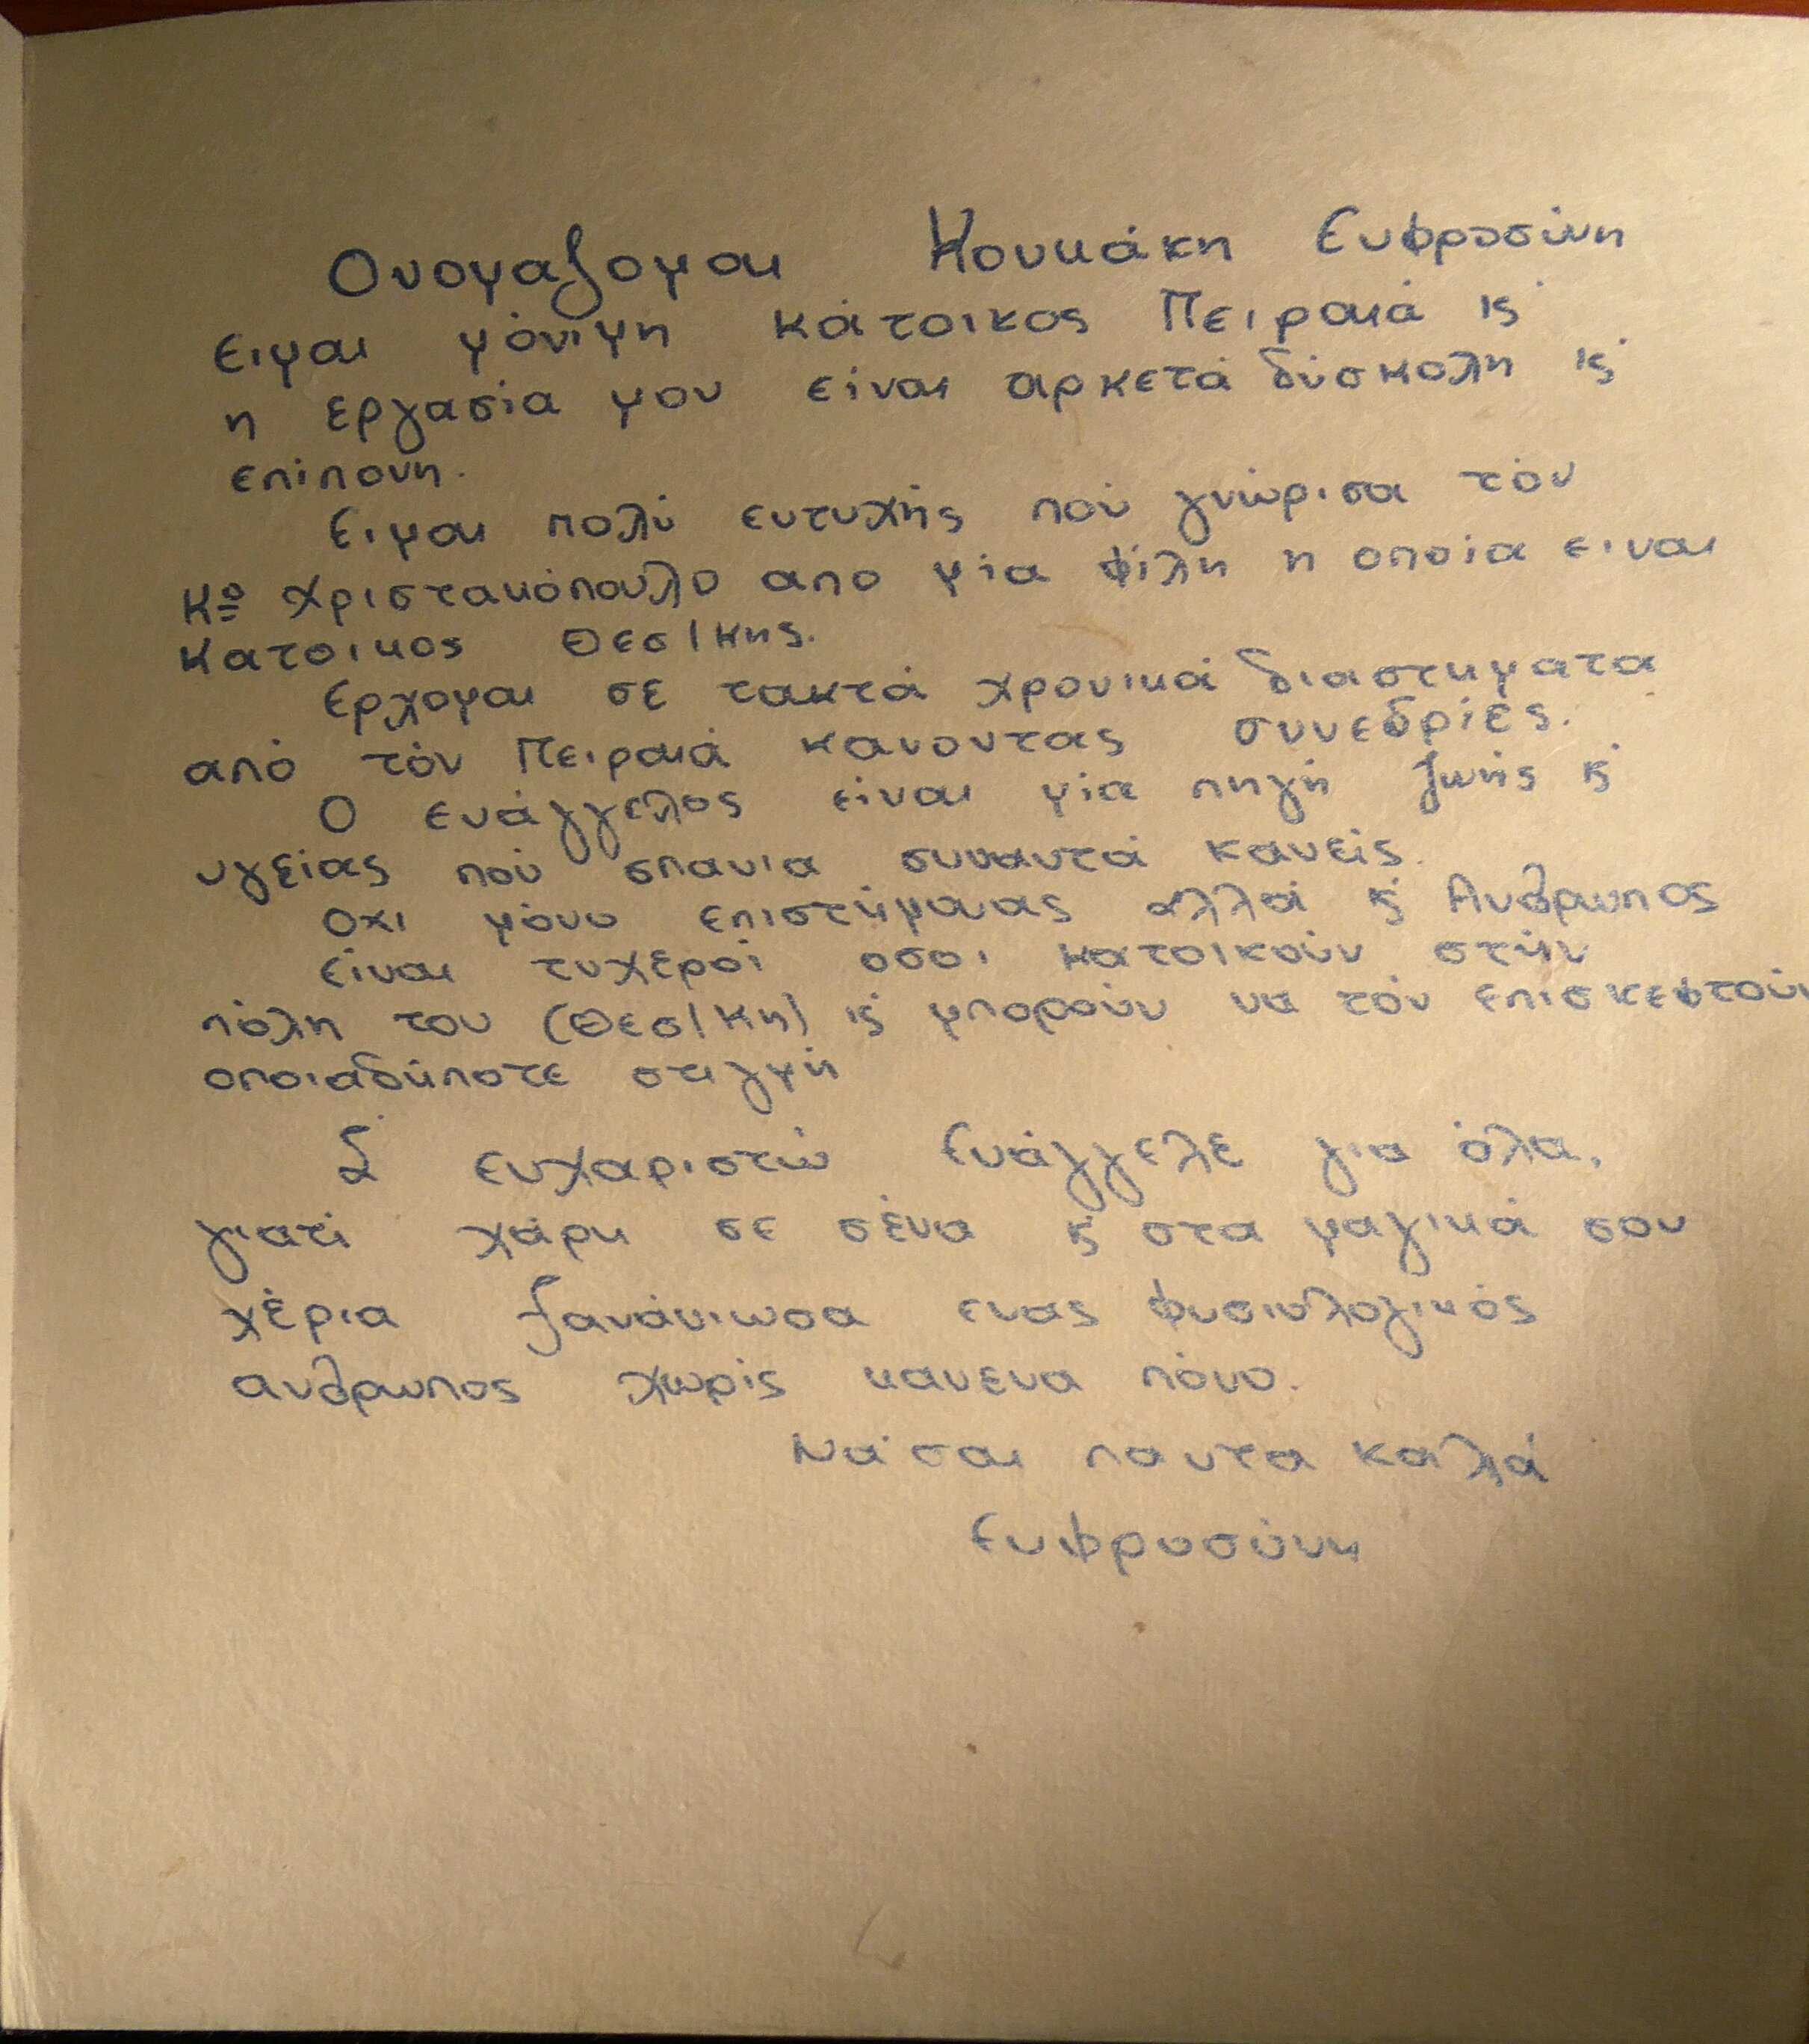 Ονομαζομαι Κουκάκη Ευφροσύνη
ειμαι μόνιμη κάτοικος Πειραιά κ'
η εργασία μου είναι αρκετά δύσκολη κ'
επίπονη.
Ειμαι πολύ ευτυχής πού γνώρισα τόν
Κο Χριστακόπουλο απο μία φίλη η οποία ειναι
Κατοικος Θεσ/κης.
Ερχομαι σε τακτά χρονικά διαστηματα
από τόν Πειραιά κανοντας συνεδρίες.
Ο ευάγγελος είναι μία πηγή ζωής κ'
υγείας πού σπανια συναντά κανείς.
οχι μόνο επιστήμονας αλλά κ' Ανθρωπος
είναι τυχεροί οσοι κατοικούν στήν
πόλη του (Θεσ/κη) κ' μπορούν να τόν επισκεφτούν
οποιαδήποτε στιγμή
Σ' ευχαριστώ Ευάγγελε για όλα,
γιατί χάρη σε σένα κ' στα μαγικά σου
χέρια ξανάνιωσα ενας φυσιολογικός
ανθρωπος χωρίς κανενα πόνο.
Να'σαι παντα καλά
Ευφροσύνη